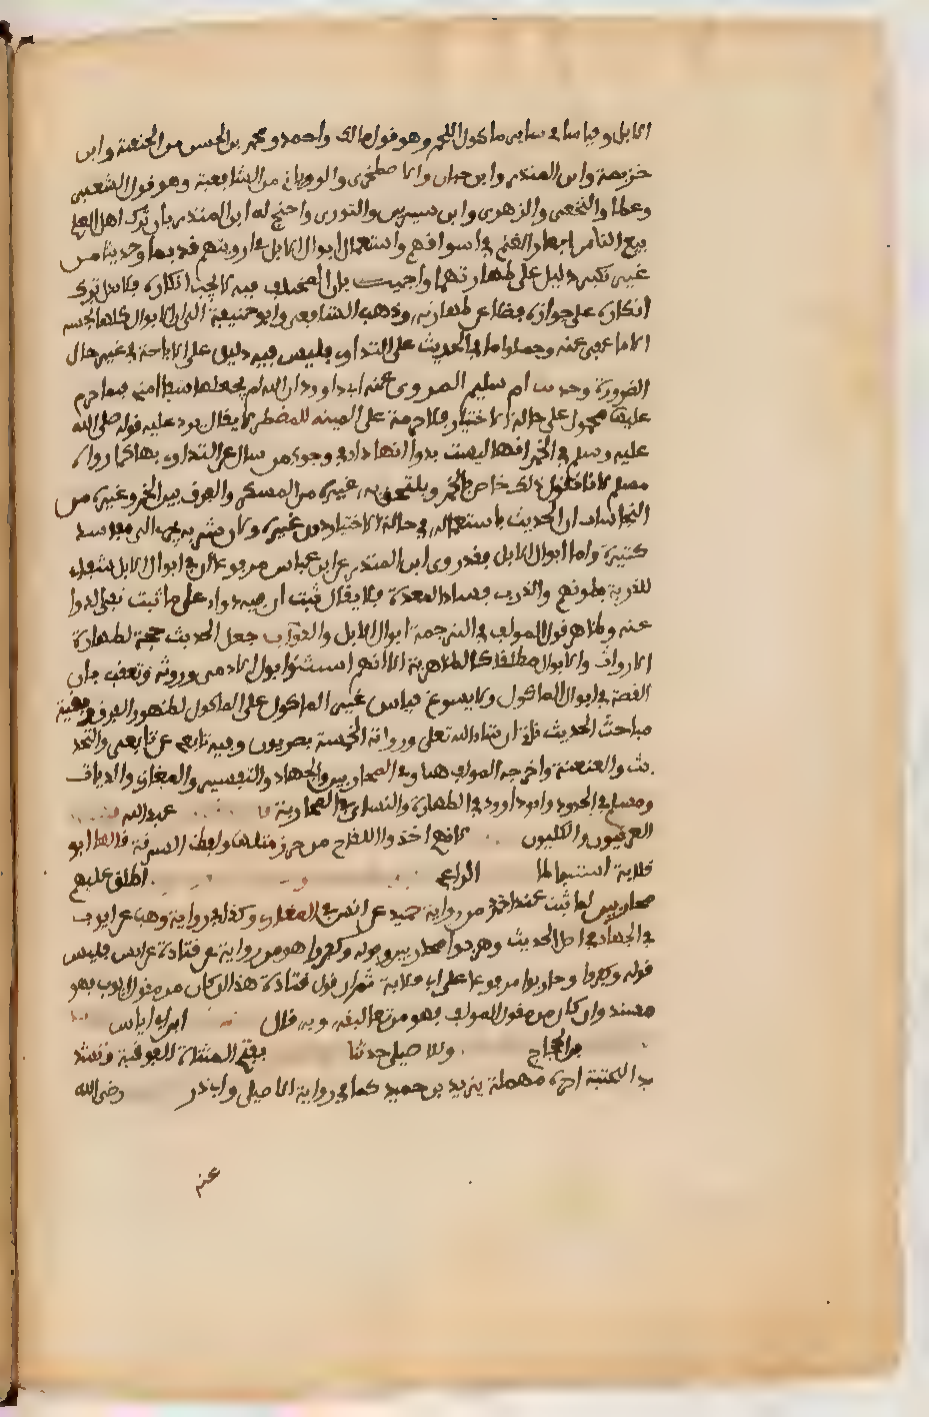 الابل وقياسا في سائر ماكول اللحم وهو قول مالك واحمد ومحمد بن الحسن من الحنفية وابن
خزيمة وابن المنذر وابن حبان والاصطخري والروياني من الشافعية وهو قول الشعبي
وعطا والنخعي والزهري وابن سيرين والثوري واحتج له ابن المنذر بان ترك اهل العلم
بيع الناس ابعار الغنم في اسواقهم واستعمال ابوال الابل في ادويتهم قديما وحديثا من
غير نكير دليل على طهارتهما واجيب بان المختلف فيه لا يجب انكاره فلا يدل ترك
انكاره على جوازه فضلا عن طهارته وذهب الشافعي وابو حنيفة الى ان الابوال كلها نجسة
الا ما عفي عنه وحملوا ما في الحديث على التداوي فليس فيه دليل على الاباحة في غير حال
الضرورة وحديث ام سليم المروي عند ابي داود ان الله لم يجعل شفا امتي فيما حرم
عليها محمول على حالة الاختيار فلا حرمة على الميتة للمضطر لا يقال يرد عليه قوله صلى الله
عليه وسلم في الخمر انها ليست بدوا انها داء في جواب من سال عن التداوي بها كما رواه
مسلم لانا نقول ذلك خاص بالخمر ويلتحق به غيره من المسكر والفرق بين الخمر وغيره من
النجاسات ان الحديث باستعماله في حالة الاختيار دون غيره ولان شربه يجر الى مفاسد
كثيرة واما ابوال الابل فقد روى ابن المنذر عن ابن عباس مرفوعا ان في ابوال الابل شفاء
للذربة بطونهم والذرب فساد المعدة فلا يقال ثبت ان فيه دواء على ما ثبت نفي الدوا
عنه وظاهر قول المولف في الترجمة ابوال الابل والدواب جعل الحديث حجة لطهارة
الارواث والابوال مطلقا كالظاهرية الا انهم استثنوا بول الادمي وروثه وتعقب بان
القصة في ابوال الماكول ولا يسوغ قياس غير الماكول على الماكول لظهور الفرق وبقية
مباحث الحديث تاتي ان شاء الله تعلى ورواته الخمسة بصريون وفيه تابعي عن تابعي والتحد
يث والعنعنة واخرجه المولف هنا وفي المحاربين والجهاد والتفسير والمغازي والديات
ومسلم في الحدود وابو داوود في الطهارة والنسائي في المحاربة عبد الله
العرنيون والعكليون لانهم اخذوا اللقاح من حرز مثلها ولفظ السرقة قالها ابو
قلابة استنباطا الراعي اطلق عليهم
محاربين لما ثبت عند احمد من رواية حميد عن انس في المغازي وكذا في رواية وهب عن ايوب
في الجهاد في اصل الحديث وهربوا محاربين وقوله وكفروا هو من رواية عن قتادة عن انس فليس
قوله وكفروا وحاربوا مرفوعا على ابي قلابة ثم ان قول قتادة هذا ان كان من مقول ايوب فهو
مسند وان كان من مقول المولف فهو من تعاليقه وبه قال ابن ابي اياس
بن الحجاج وللاصيلي حدثنا بفتح المثناة الفوقية وتشد
يد التحتية اخره مهملة يزيد بن حميد كما في رواية الاصيلي وابي ذر رضي الله
عنه